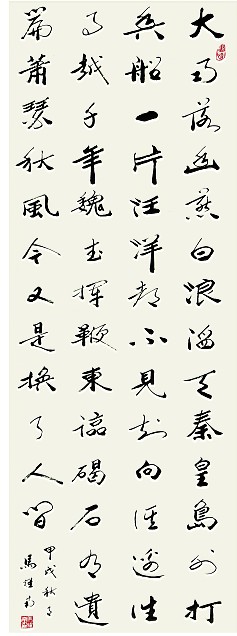 大雨落幽燕白浪滔天秦皇島外打
魚船一片汪洋都不見知向誰邊往
事越千年魏武揮鞭東臨碣石有遺
篇蕭瑟秋風今又是換了人間
甲戌秋
馬